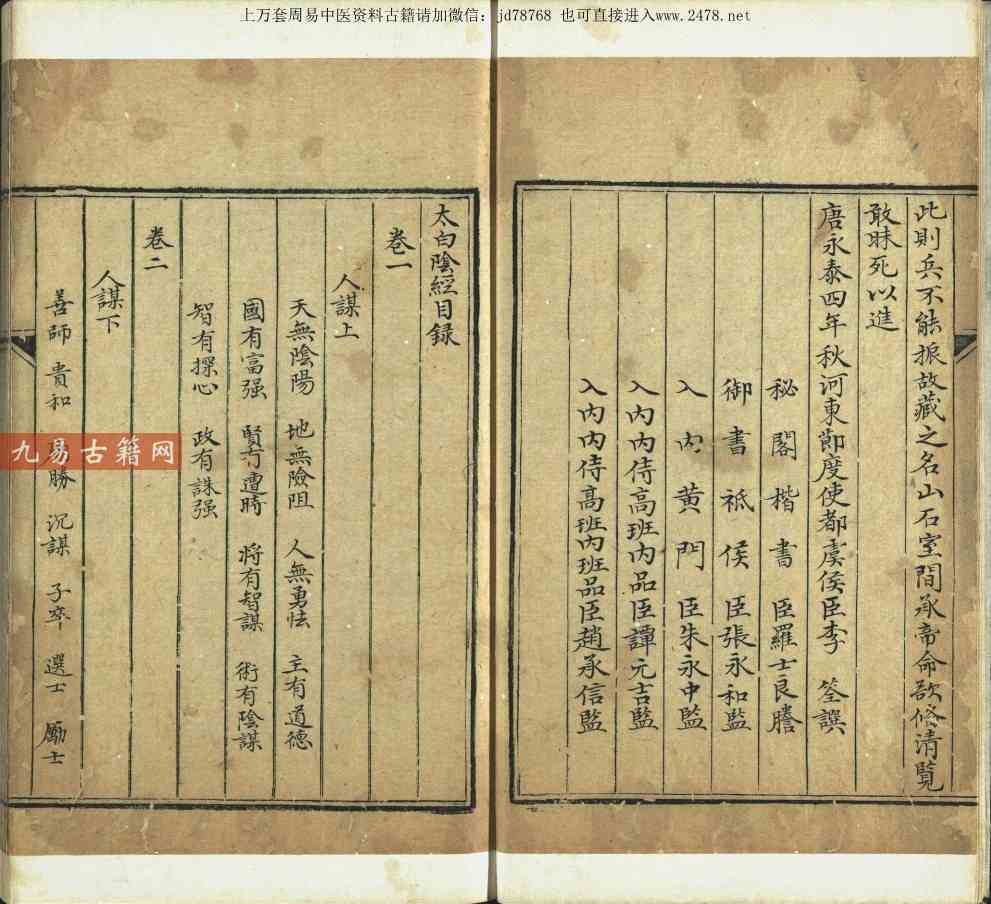 上万套周易中医资料古籍请加微信：jd78768 也可直接进入www.2478.net
此則兵不能振故藏之名山石室間承帝命欲俻清覧
敢昧死以進
唐永泰四年秋河東節度使都虞侯臣李 筌譔
秘閣楷書臣羅士良謄
御書祗侯臣張永和監
入內黄門臣朱永中監
入內內侍高班內品臣譚元吉監
入內內侍高班內班品臣趙承信監
太白陰經目録
卷一
人謀上
天無陰陽 地無險阻 人無勇怯 主有道德
國有富强 賢有遭時 將有智謀 術有陰謀
智有探心 政有誅强
卷二
人謀下
善師 貴和 勝 沉謀 子卒 選士 勵士
九易古籍网